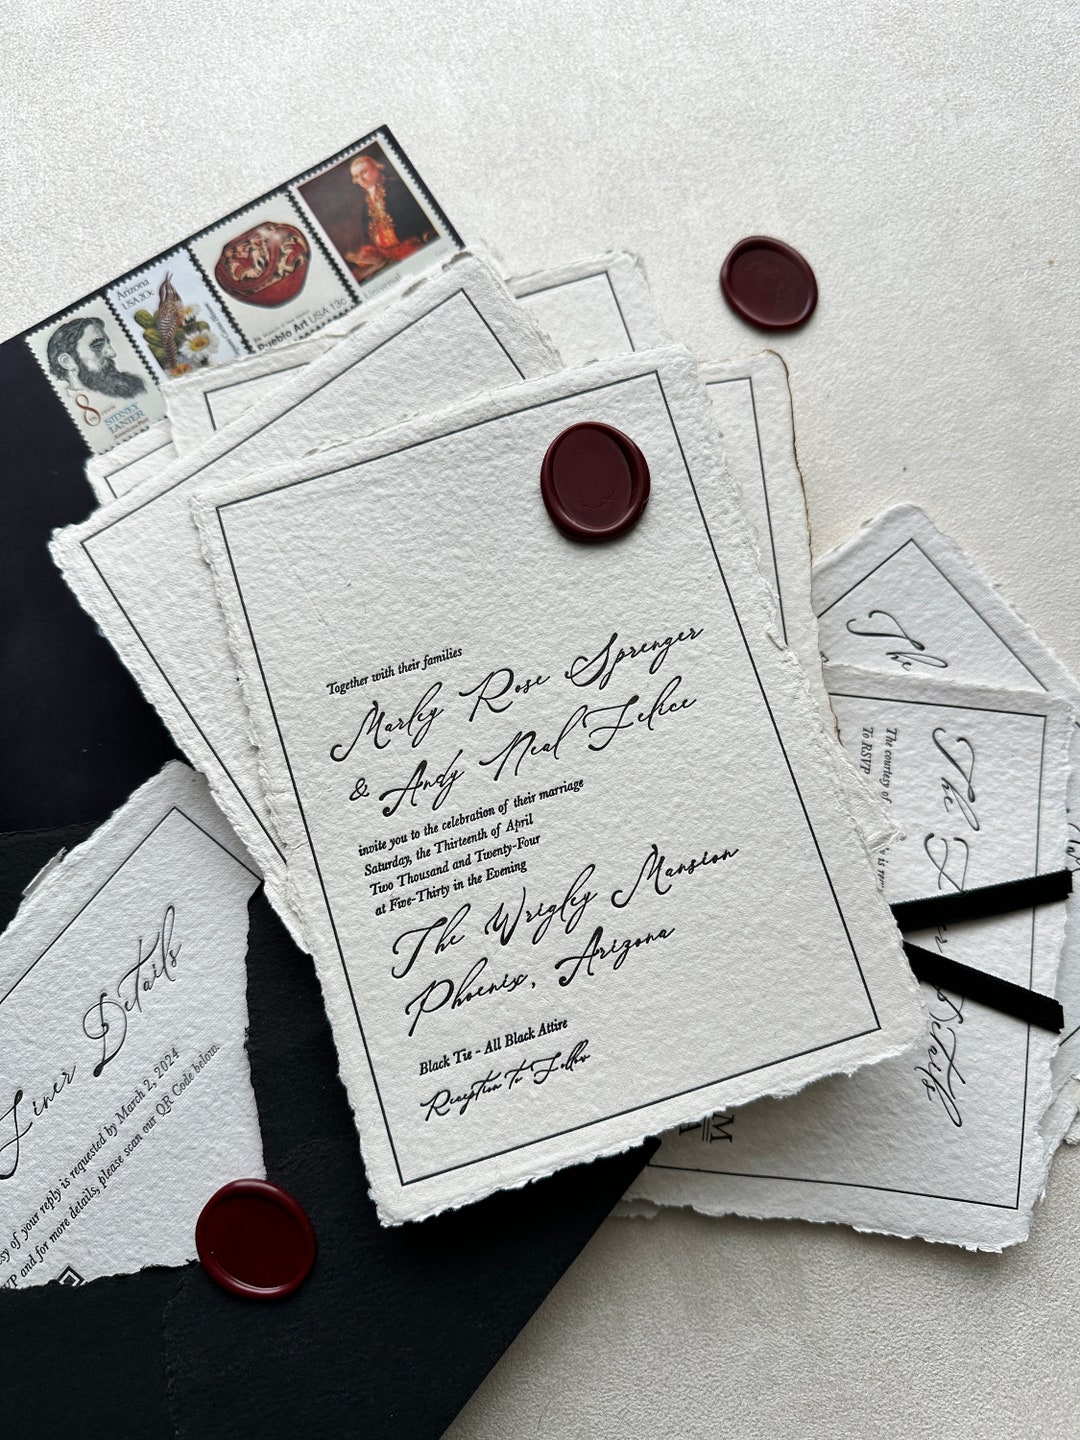 8 cents
SIDNEY
LANIER
American Poet
Arizona
USA 20c
Pueblo Art USA 13c
Universal
Together with their families
Marley Rose Sprenger
& Andy Neal Felice
invite you to the celebration of their marriage
Saturday, the Thirteenth of April
Two Thousand and Twenty-Four
at Five-Thirty in the Evening
The Wrigley Mansion
Phoenix, Arizona
Black Tie - All Black Attire
Reception to Follow
Finer Details
of your reply is requested by March 2, 2024
and for more details, please scan our QR Code below.
The
The
Details
The courtesy of
To RSVP
M